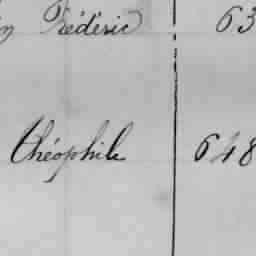 Frédéric 63
Théophile 648